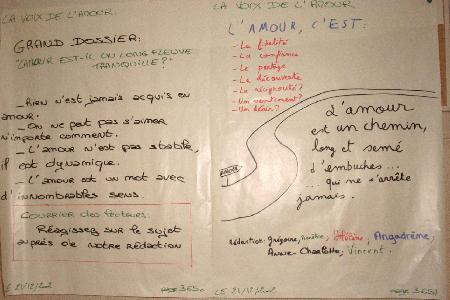 LA VOIX DE L'AMOUR
GRAND DOSSIER:
"L'AMOUR EST-IL UN LONG FLEUVE
TRANQUILLE?"
- Rien n'est jamais acquis en
amour.
- On ne peut pas s'aimer
n'importe comment.
- L'amour n'est pas stable,
il est dynamique.
- L'amour est un mot avec
d'innombrables sens.
Courrier des lecteurs:
Réagissez sur le sujet
auprès de notre rédaction
LE 21/12/2002
page 365
LA VOIX DE L'AMOUR
L'AMOUR, C'EST:
- La fidélité
- La confiance
- Le partage
- La découverte
- La réciprocité?
- Un sentiment?
- Un désir?
L'amour
est un chemin,
long et semé
d'embuches...
... qui ne s'arrête
jamais.
rédaction: Grégoire, Angadrême,
Anne-Charlotte, Vincent.
LE 21/12/2002
page 365